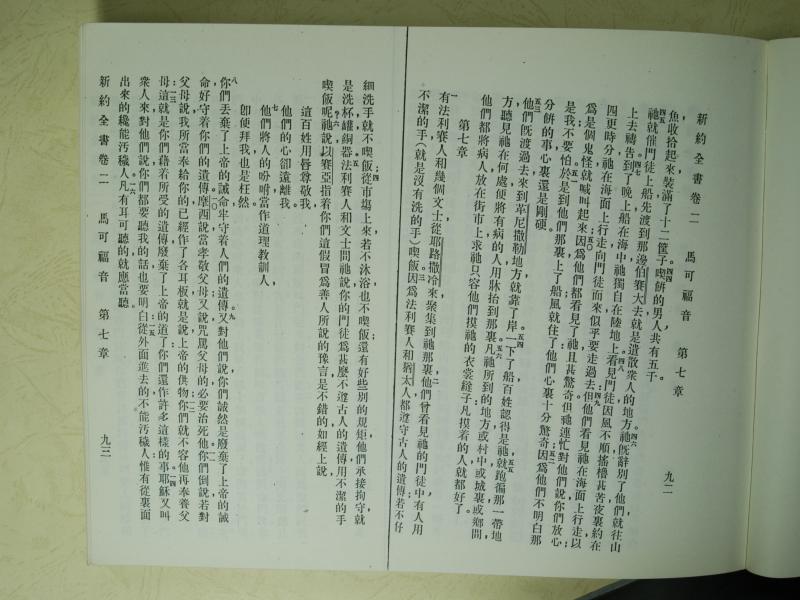 新約全書卷二　馬可福音　第七章　九二
魚收拾起來裝滿了十二筐子喫餅的男人共有五千
祂就催門徒上船先渡到那邊伯賽大去就是遣散衆人的地方祂旣辭別了他們就往山
上去禱告到了晚上船在海中祂獨自在陸地上看見門徒因風不順搖櫓甚苦夜裏約在
四更時分祂在海面上行走向門徒而來似乎要走過去但他們看見祂在海面上行走以
爲是個鬼怪就喊叫起來因爲他們都看見了祂且甚驚奇但祂連忙對他們說你們放心
是我不要怕於是到他們那裏上了船風就住了他們心裏十分驚奇因爲他們不明白那
分餅的事心裏還是剛硬
他們旣渡過來到革尼撒勒地方就靠了岸一下了船百姓認得是祂就跑徧那一帶地
方聽見祂在何處便將有病的人用牀抬到那裏凡祂所到的地方或村中或城裏或鄉間
他們都將病人放在街市上求祂只容他們摸祂的衣裳繸子凡摸着的人就都好了
第七章
有法利賽人和幾個文士從耶路撒冷來聚集到祂那裏他們曾看見祂的門徒中有人用
不潔的手(就是沒有洗的手)喫飯因爲法利賽人和猶太人都遵守古人的遺傳若不仔
細洗手就不喫飯從市塲上來若不沐浴也不喫飯還有好些別的規矩他們承接拘守就
是洗杯罐銅器法利賽人和文士問祂說你的門徒爲甚麼不遵古人的遺傳用不潔的手
喫飯呢祂說以賽亞指着你們這假冒爲善人所說的豫言是不錯的如經上說
這百姓用唇尊敬我
他們的心卻遠離我
他們將人的吩咐當作道理敎訓人
卽使拜我也是枉然
你們丟棄了上帝的誡命牢守着人們的遺傳又對他們說你們誠然是廢棄了上帝的誡
命好守着你們的遺傳摩西說當孝敬父母又說咒罵父母的必要治死他你們倒說若對
父母說我所當奉給你的已經作了各耳板就是說上帝的供物你們就不容他再奉養父
母這就是你們藉着所受的遺傳廢棄了上帝的道了你們還作許多這樣的事耶穌又叫
衆人來對他們說你們都要聽我的話也要明白從外面進去的不能汚穢人惟有從裏面
出來的纔能汚穢人凡有耳可聽的就應當聽
新約全書卷二　馬可福音　第七章　九三